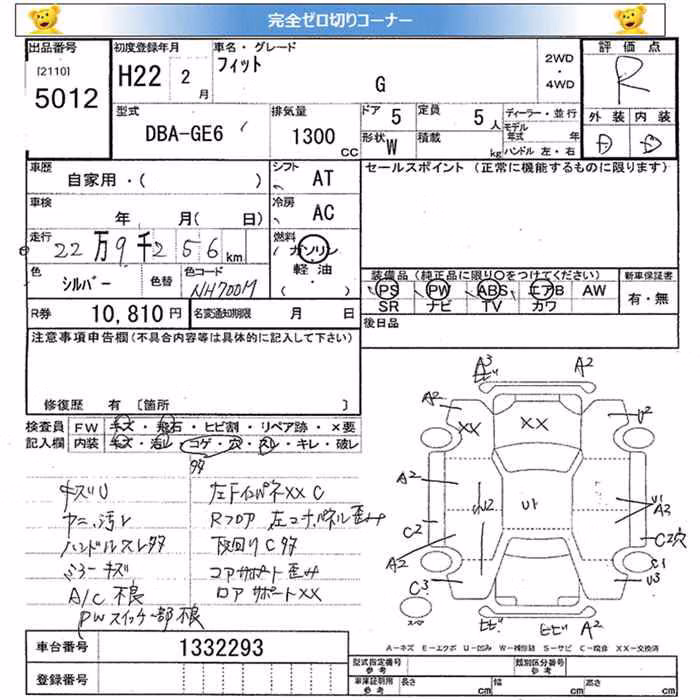 完全ゼロ切りコーナー
出品番号 初度登録年月 車名・グレード 2WD・4WD 評価点
[2110] 5012 H22 2月 フィット G R
型式 排気量 ドア 定員 ディーラー・並行 外装 内装
DBA-GE6 1300CC 5 5人 モデル年式 年 D D
形状 W 積載 kg ハンドル 左・右
車歴 シフト セールスポイント (正常に機能するものに限ります)
自家用・( ) AT
車検 冷房
年 月( 日) AC
走行 燃料
22万9千256km ガソリン
軽油
( ・ )
色 色替 色コード 装備品(純正品に限り○をつけてください) 新車保証書
シルバー NH700M PS PW ABS エアB AW 有・無
SR ナビ TV カワ
R券 10,810円 名変通知期限 月 日 後日品
注意事項申告欄(不具合内容等は具体的に記入して下さい)
修復歴 有 [箇所 ]
検査員 FW キズ・飛石・ヒビ割・リペア跡・×要
記入欄 内装 キズ・汚レ・コゲ・穴・スレ・キレ・破レ
タタ
キズU 左FインパネXX C
ヤニ、汚レ Rフロア 左コーナーパネル歪み
ハンドルスレタタ 下回りCタタ
ミラーキズ コアサポート歪み
A/C不良 ロアサポートXX
PWスイッチ一部不良
A3 ヒビ A2
A2 XX XX U2
A2 U2 U1 U1 A2
C2 A2 C2穴
C3 C1 U3
スペア ヒビ ヒビ A2
A-キズ E-エクボ U-凹み W-補修跡 S-サビ C-腐食 XX-交換済
車台番号 1332293
登録番号
型式指定番号 参考 類別区分番号 参考
車庫証明用 参考 長さ cm 幅 cm 高さ cm